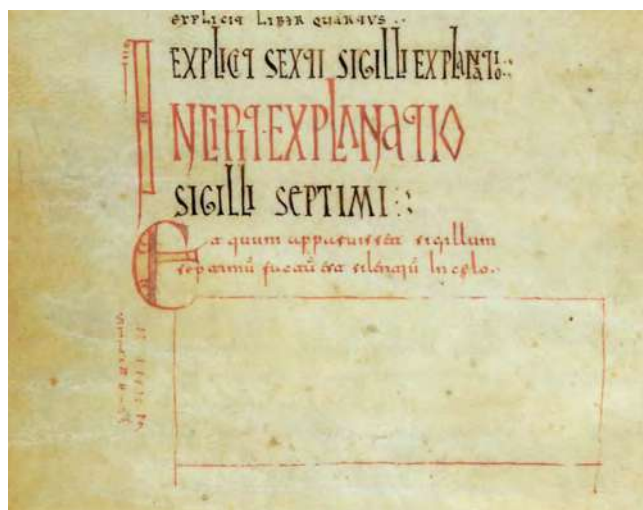 EXPLICIT LIBER QUARTUS
EXPLICIT SEXTI SIGILLI EXPLANATIO
INCIPIT EXPLANATIO
SIGILLI SEPTIMI
Et quum apparuisset sigillum
septimū factū est silentiū In celo.